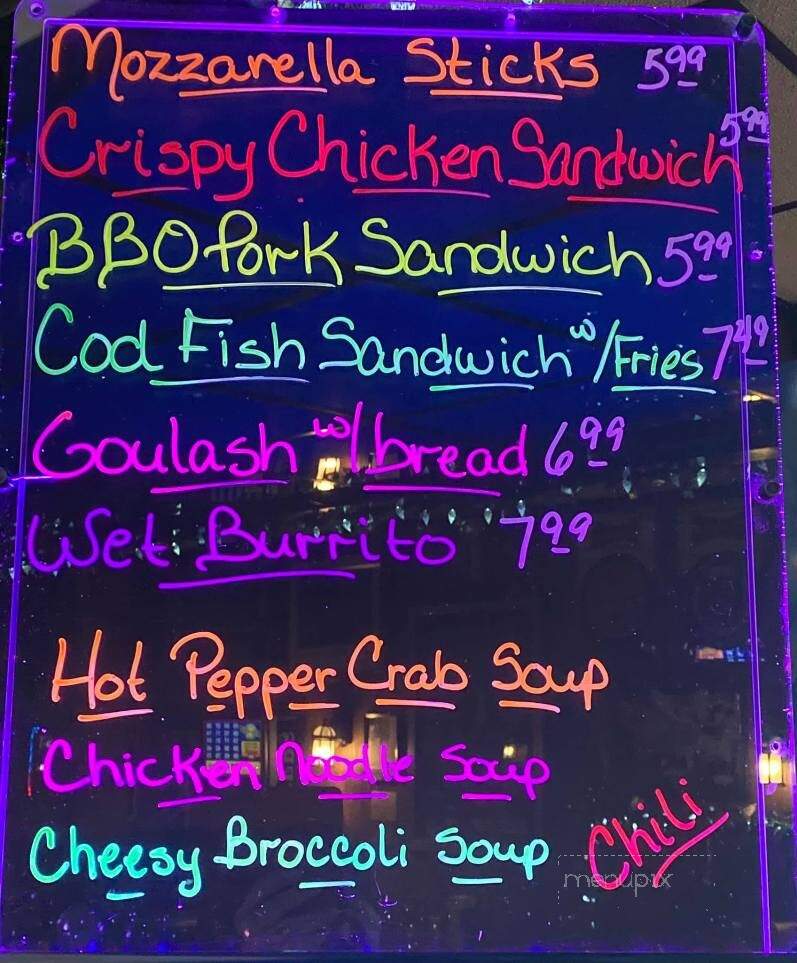 Mozzarella Sticks 5.99
Crispy Chicken Sandwich 5.99
BBQ Pork Sandwich 5.99
Cod Fish Sandwich w/Fries 7.49
Goulash w/bread 6.99
Wet Burrito 7.99
Hot Pepper Crab Soup
Chicken Noodle Soup
Cheesy Broccoli Soup Chili
menupix